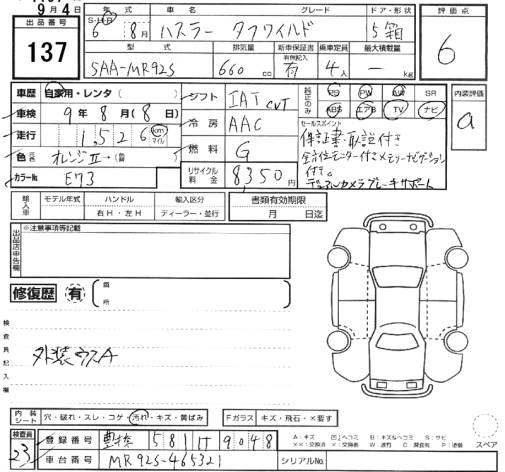 9月4日
出品番号
137
S・H・R 年式
6年8月
車名
ハスラー タフワイルド
グレード
ドア・形状
5 箱
評価点
6
型式
5AA-MR92S
排気量
660 cc
新車保証書
有無記入
有
乗車定員
4人
最大積載量
- kg
車歴 自家用・レンタ( )
車検 9年8月(8日)
走行 1,526 km マイル
色 元色 オレンジⅡ→(替 )
カラーNo. E73
シフト IAT CVT
冷房 AAC
燃料 G
リサイクル料金 8,350円
純正のみ
PS PW AW SR
ABS エアB TV ナビ
セールスポイント
保証書・取説付き
全方位モニター付きメモリーナビゲーション
付き。
デュアルカメラブレーキサポート
内装評価
a
輸入車
モデル年式
ハンドル
右H・左H
輸入区分
ディーラー・並行
書類有効期限
月 日迄
出品店申告欄
※注意事項等記載
修復歴 有 (箇所 )
検査員記入欄
外装ウスA
内装シート 穴・破れ・スレ・コゲ・汚れ・キズ・黄ばみ
Fガラス キズ・飛石・×要す
検査員
23
登録番号 豊橋 581 け 9048
車台番号 MR92S-465321
シリアルNo.
スペア